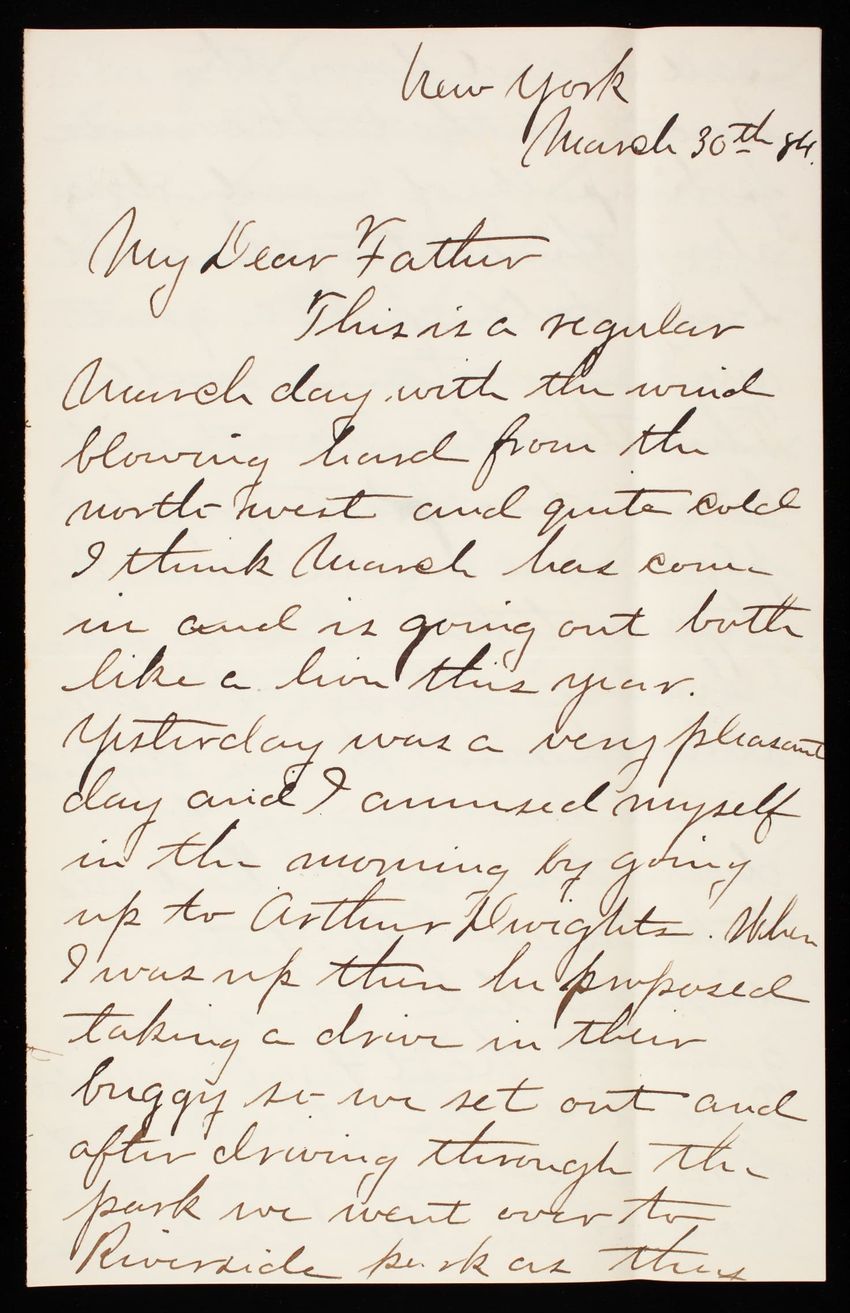 New York
March 30th 84.
My Dear Father
This is a regular
March day with the wind
blowing hard from the
north-west and quite cold
I think March has come
in and is going out both
like a lion this year.
Yesterday was a very pleasant
day and I amused myself
in the morning by going
up to Arthur Dwights. When
I was up there he proposed
taking a drive in their
buggy so we set out and
after driving through the
park we went over to
Riverside park as they